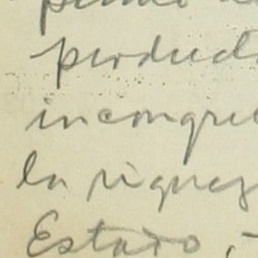 product
incongru
la riquez
Estado,